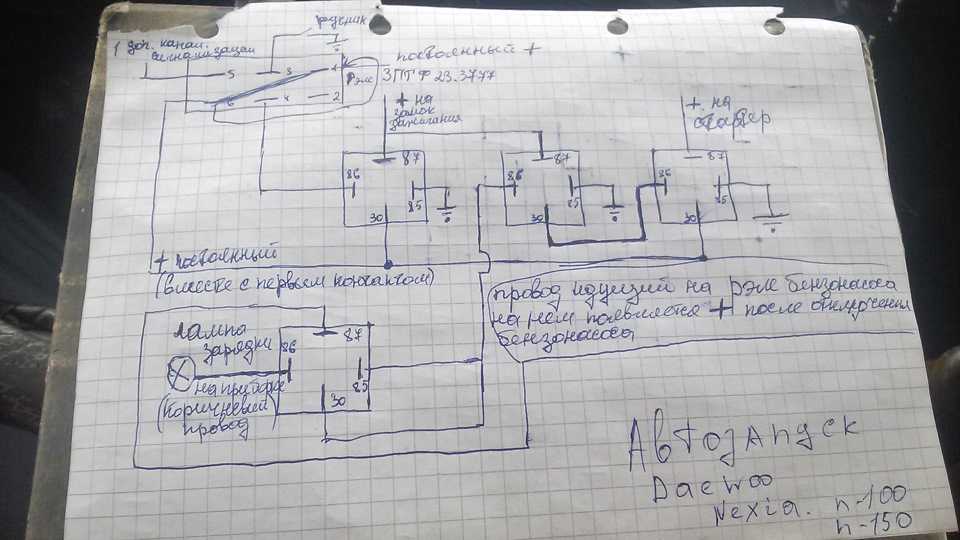 1 доп. канал.
сигнализации
ручник
5
3
1
6
4
2
Рэле
постоянный +
ЗПТФ 23.3777
+ на
замок
зажигания
+ на
стартер
86
87
85
30
86
87
85
30
86
87
85
30
+ постоянный
(вместе с первым контактом)
провод идущий на рэле бензонасоса
на нем появляется + после отключения
бензонасоса
лампа
зарядки
на приборе
(коричневый
провод
86
87
85
30
Автозапуск
Daewoo
Nexia. n-100
n-150